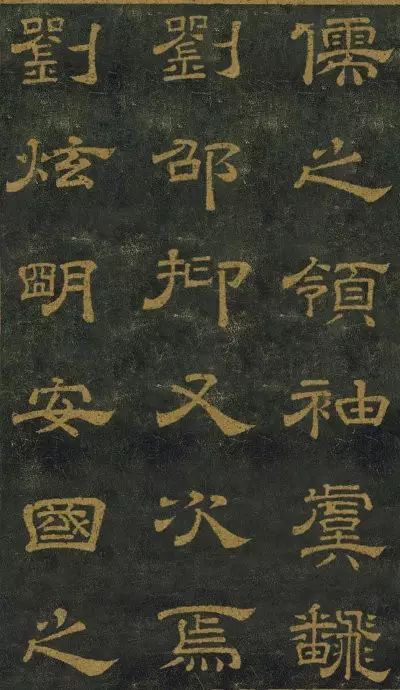 儒之領袖虞飜
劉邵抑又次焉
劉炫明安國之